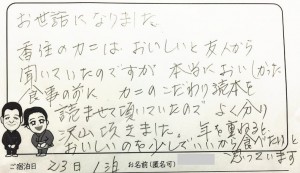 お世話になりました
香住のカニはおいしいと友人から
聞いていたのですが 本当においしかった
食事の前に カニのこだわり読本を
読ませて頂いていので よく分り
沢山頂きました。年を重ねると、
おいしいのを少しでいいから食べたいと
思っています
ご宿泊日 2/3日 1泊 お名前(匿名可)